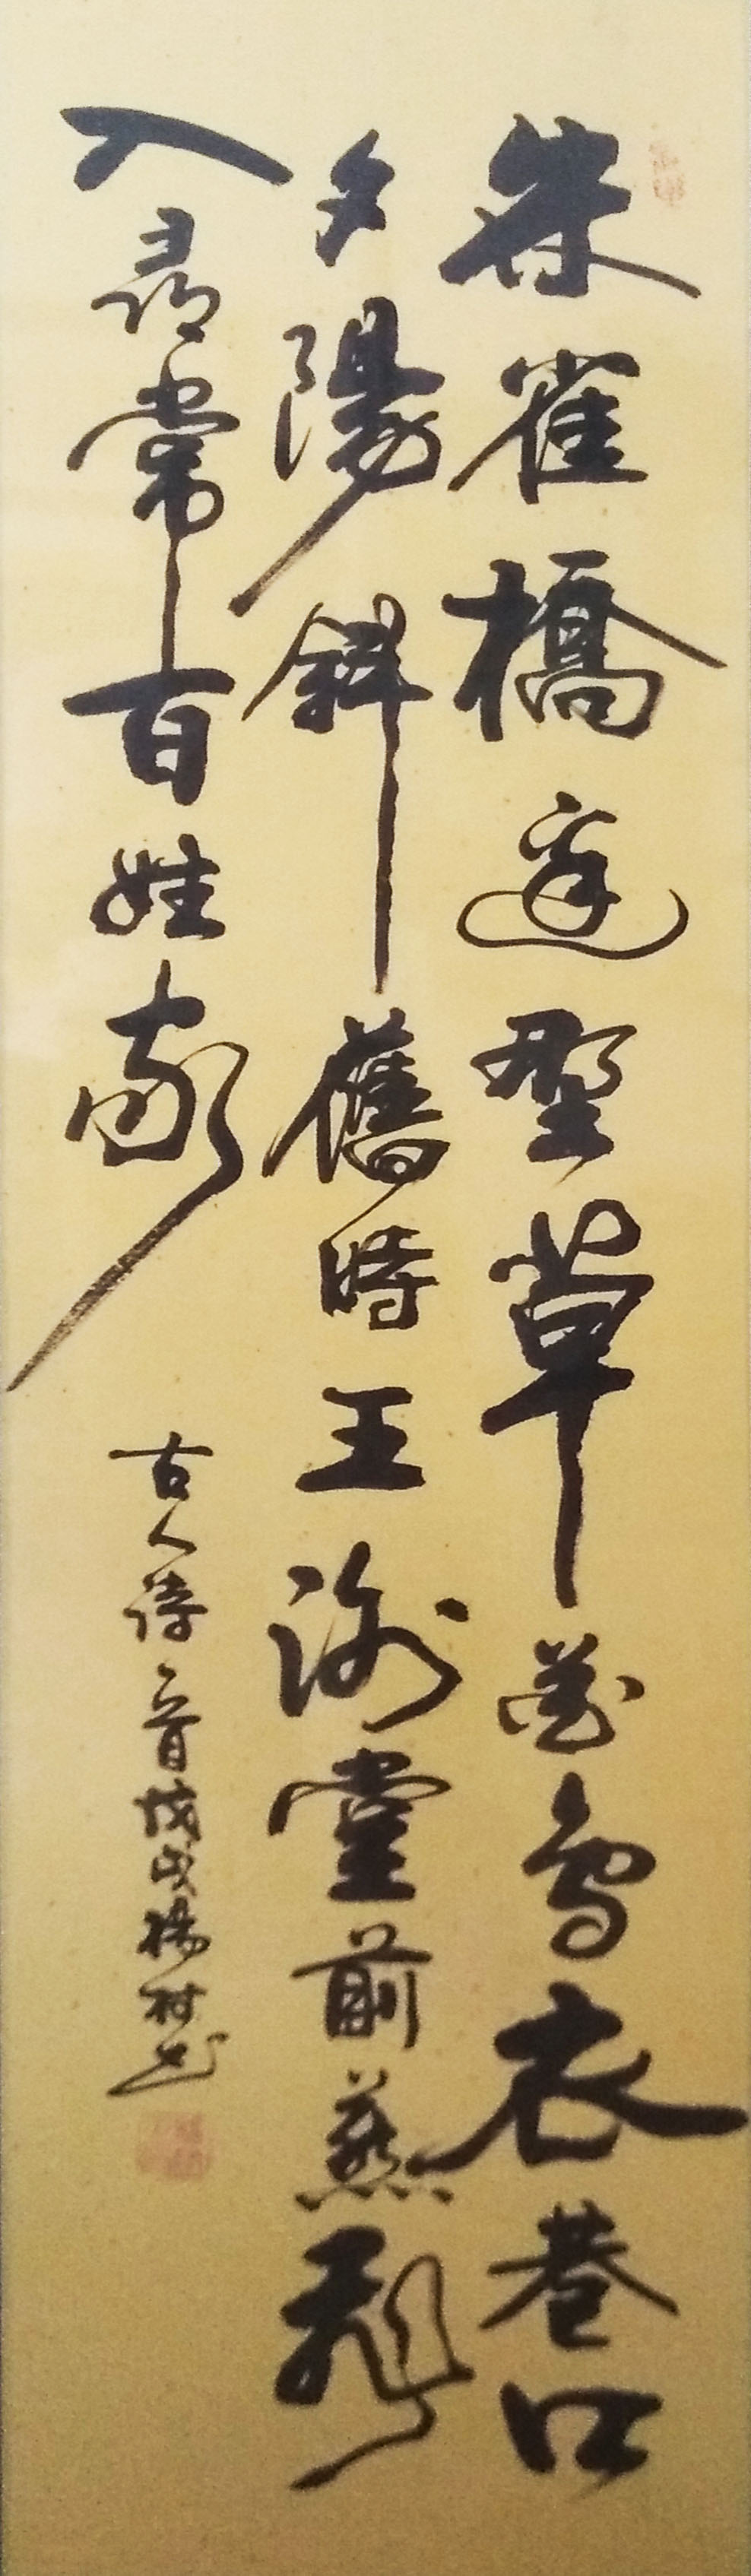 朱雀橋邊野草花烏衣巷口
夕陽斜舊時王謝堂前燕飛
入尋常百姓家
古人詩一首戊戌楊村书